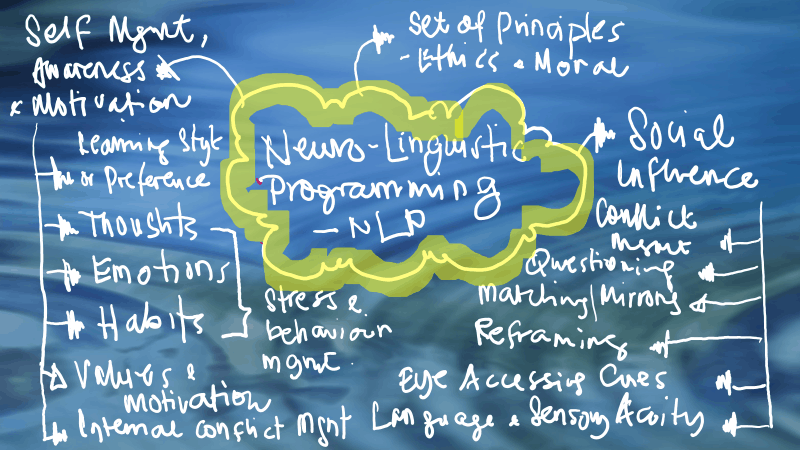 Self Mgmt,
Awareness &
& Motivation
Learning Style
or Preference
Thoughts
Emotions
Habits
Stress &
behaviour
mgmt.
Values &
motivation
Internal conflict Mgnt
Set of Principles
- Ethics & Moral
Neuro-Linguistic
Programming
- NLP
Social
Influence
Conflict
mgmt
Questioning
Matching/Mirroring
Reframing
Eye Accessing Cues
Language & Sensory Acuity